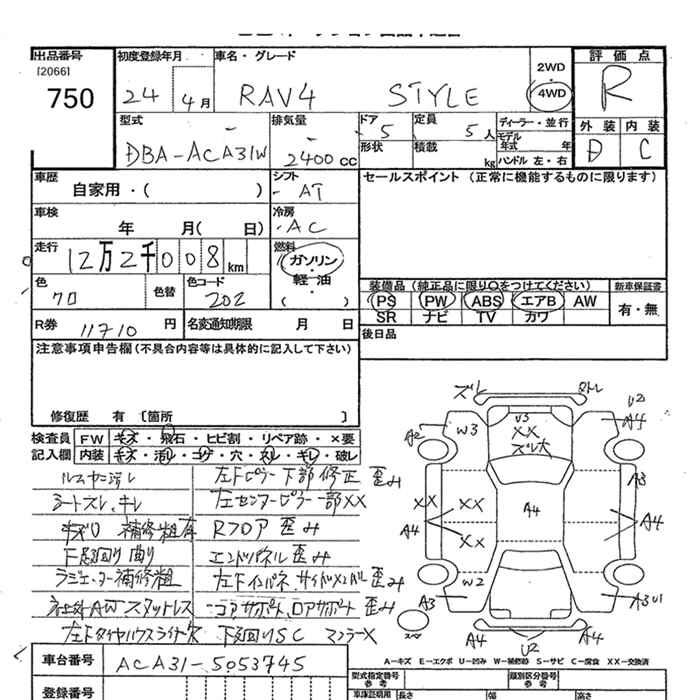 出品番号
[2066]
750
初度登録年月
24 4月
車名・グレード
RAV4 STYLE
2WD
4WD
評価点
R
外装 内装
D C
型式
DBA-ACA31W
排気量
2400cc
ドア
5
形状
定員
5人
積載
kg
ディーラー・並行
モデル年式 年
ハンドル 左・右
車歴
自家用・( )
シフト
AT
車検
年 月( 日)
冷房
AC
走行
12万2千008km
燃料
ガソリン
・
軽油
( )
色
クロ
色替
色コード
202
R券 11710円
名変通知期限 月 日
セールスポイント (正常に機能するものに限ります)
装備品(純正品に限り〇をつけてください)
PS PW ABS エアB AW
SR ナビ TV カワ
新車保証書
有・無
後日品
注意事項申告欄(不具合内容等は具体的に記入して下さい)
修復歴 有 [箇所 ]
検査員 FW キズ・飛石・ヒビ割・リペア跡・×要
記入欄 内装 キズ・汚レ・コゲ・穴・スレ・キレ・破レ
ルームヤニ汚レ
シートスレ、キレ
キズU 補修粗有
下廻り曲り
ラジエーター補修粗
社外AWスタットレス
左下タイヤハウスライナー欠
左Fピラー下部修正 歪み
左センターピラー一部XX
Rフロア 歪み
エンドパネル 歪み
コアサポート、ロアサポート 歪み
下廻りSC マフラーX
ズレ
U2
A4
A2
W3
U3
XX
ズレ大
A3
XX
XX
A4
A4
A4
XX
W2
A3
A3U1
A4
U2
A4
A-キズ E-エクボ U-凹み W-補修跡 S-サビ C-腐食 XX-交換済
車台番号
ACA31-5053745
登録番号
型式指定番号
参考
類別区分番号
参考
車庫証明用
長さ
幅
高さ